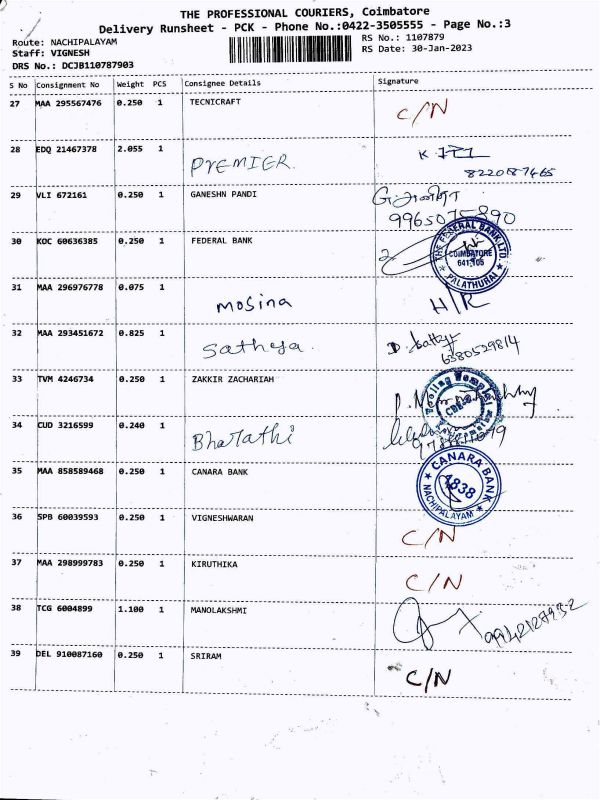 THE PROFESSIONAL COURIERS, Coimbatore
Delivery Runsheet - PCK - Phone No.:0422-3505555 - Page No.:3
Route: NACHIPALAYAM
RS No.: 1107879
Staff: VIGNESH
RS Date: 30-Jan-2023
DRS No.: DCJB110787903
S No Consignment No Weight PCS Consignee Details Signature
27 MAA 295567476 0.250 1 TECNICRAFT C/N
28 EDQ 21467378 2.055 1 PREMIER
8220187465
29 VLI 672161 0.250 1 GANESHN PANDI
9965075890
30 KOC 60636385 0.250 1 FEDERAL BANK
THE FEDERAL BANK LTD.
COIMBATORE
641 105
PALATHURAI
31 MAA 296976778 0.075 1 mosina H/R
32 MAA 293451672 0.825 1 Sathya.
6380529814
33 TVM 4246734 0.250 1 ZAKKIR ZACHARIAH
34 CUD 3216599 0.240 1 Bharathi
35 MAA 858589468 0.250 1 CANARA BANK
CANARA BANK
4838
NACHIPALAYAM
36 SPB 60039593 0.250 1 VIGNESHWARAN C/N
37 MAA 298999783 0.250 1 KIRUTHIKA C/N
38 TCG 6004899 1.100 1 MANOLAKSHMI
9942127932
39 DEL 910087160 0.250 1 SRIRAM C/N